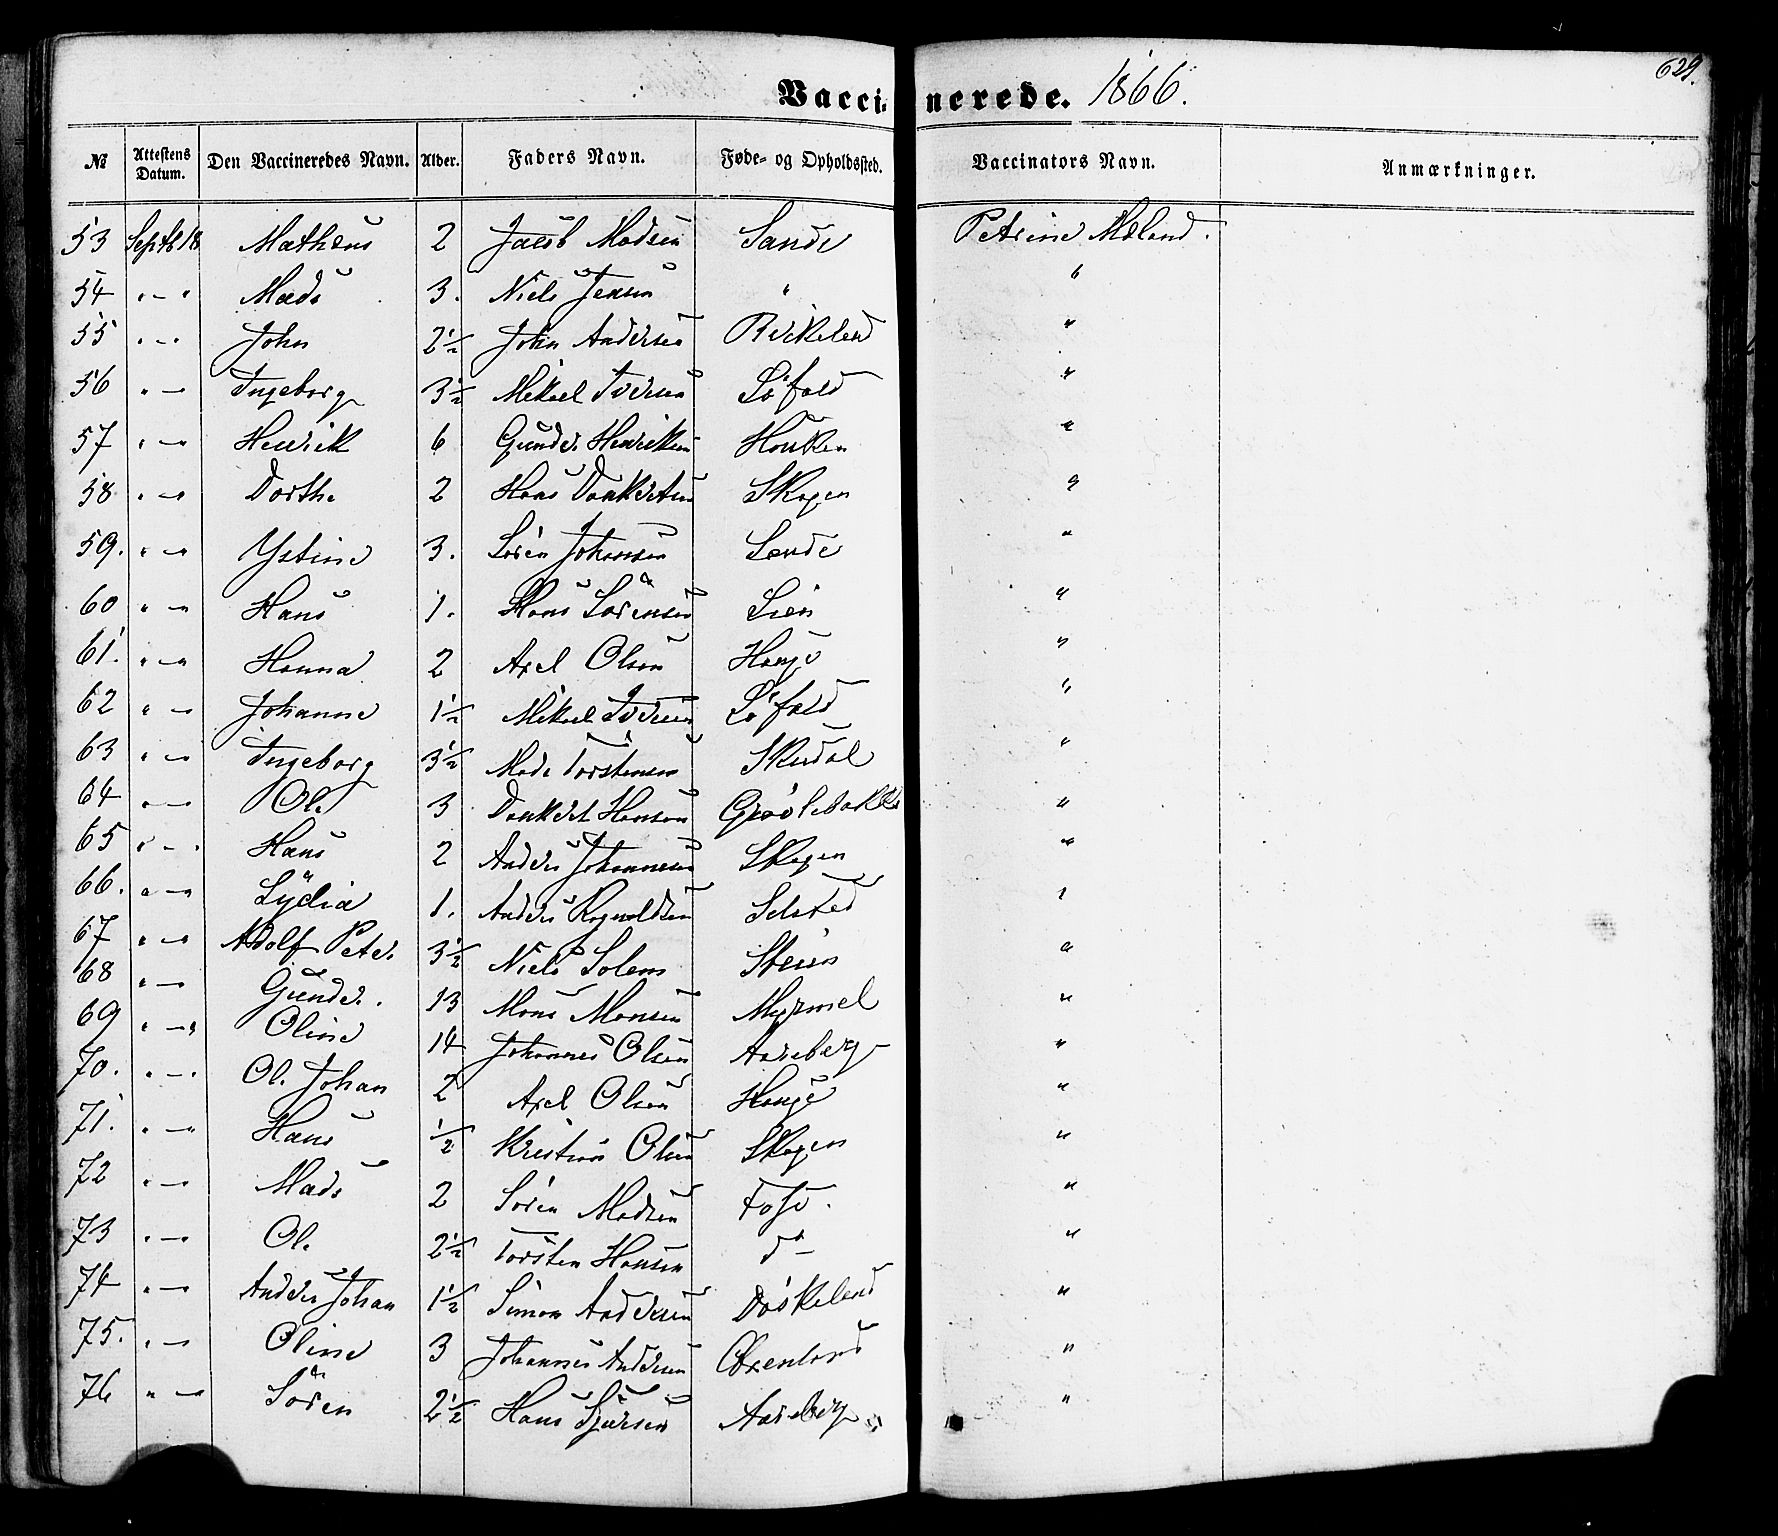 629.
Vaccinerede. 1866.
№ Attestens Datum. Den Vaccineredes Navn. Alder. Faders Navn. Føde- og Opholdssted. Vaccinators Navn. Anmærkninger.
53 Septb 18 Mathæus 2 Jacob Madsen Sande Petrine Mæland.
54 " — " Mads 3. Niels Jensen " "
55 " — " John 2½ John Andersen "
56 " — Ingeborg 3½ Mikael Iversen Løfald "
57 " — " Henrik 6 Gunder Henriksen Houken "
58 " — " Dorthe 2 Hans Dankertsen Skogen "
59. " — " Ystine 3. Sören Johansen Sande "
60 " — " Hans 1. Hans Sørensen Lien "
61. " — " Hanna 2 Axel Olsen Hauge "
62 " — " Johanne 1½ Mikael Iversen Løfald "
63 " — " Ingeborg 3½ Mads Torstensen Skudal "
64 " — " Ole 3 Dankert Hansen "
65 " — " Hans 2 Anders Johannesen Skogen "
66. " — " Lydia 1. Anders Ragnvaldsen Selsted "
67 " — " Adolf Peter 3½ Niels Solem Steien "
68 " — " Gunder. 13 Mons Monsen Myrmel "
69 " — " Oline 14 Johannes Olsen Aareberg "
70. " — " Ole Johan 2 Axel Olsen Hauge "
71. " — " Hans ½ Kristian Olsen Skogen "
72 " — " Mads 2 Sören Madsen Fosse. "
73 " — " Ole 2½ Torsten Hansen do "
74 " — " Anders Johan 1½ Simon Andersen Döskeland "
75. " — " Oline 3 Johannes Andersen Øxenland "
76 " — " Sören 2½ Hans Sjursen Aareberg "